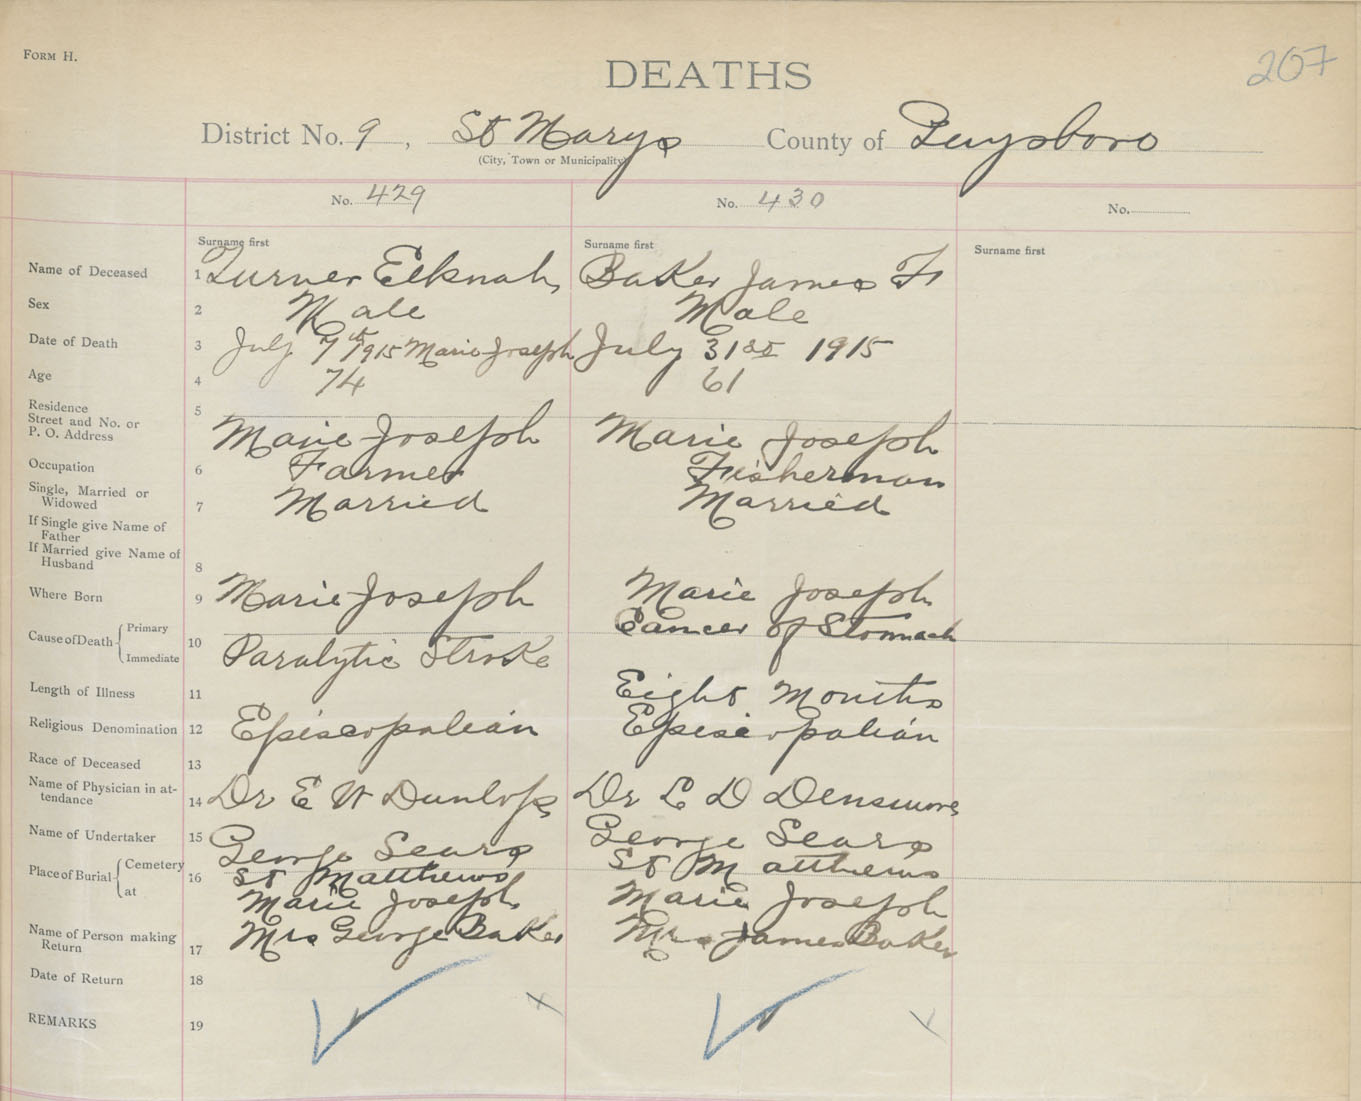 FORM H.
207
DEATHS
District No. 9, St Marys County of Guysboro
(City, Town or Municipality)
No. 429 No. 430 No.
Surname first Surname first Surname first
Name of Deceased 1 Turner Elknah Baker James F
Sex 2 Male Male
Date of Death 3 July 7th 1915 Marie Joseph July 31st 1915
Age 4 74 61
Residence
Street and No. or
P. O. Address 5 Marie Joseph Marie Joseph
Occupation 6 Farmer Fisherman
Single, Married or
Widowed 7 Married Married
If Single give Name of
Father
If Married give Name of
Husband 8
Where Born 9 Marie Joseph Marie Joseph
Cause of Death Primary Cancer of Stomach
Immediate 10 Paralytic Stroke
Length of Illness 11 Eight Months
Religious Denomination 12 Episcopalian Episcopalian
Race of Deceased 13
Name of Physician in at-
tendance 14 Dr E W Dunlop Dr C D Densmore
Name of Undertaker 15 George Sears George Sears
Place of Burial Cemetery 16 St Matthews St Matthews
at Marie Joseph Marie Joseph
Name of Person making
Return 17 Mrs George Baker Mrs James Baker
Date of Return 18
REMARKS 19